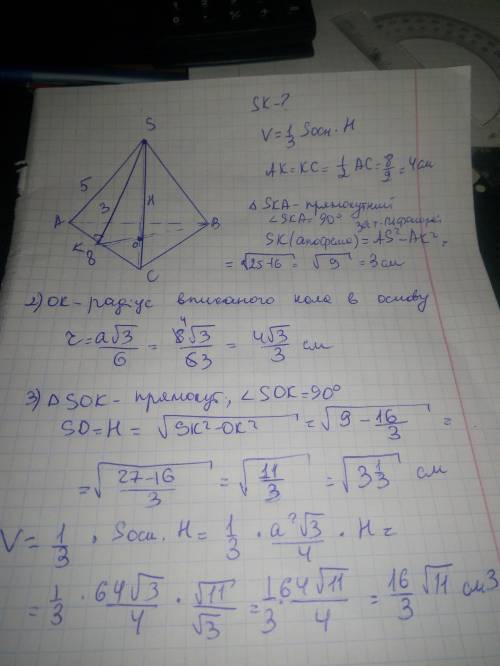 SK-?
V=1/3 Sосн. H
AK=KC=1/2 AC=8/2=4см
△SKA-прямокутний
∠SKA=90° за т. Піфагора
SK(апофема)=AS²-AK²=
=√25-16=√9=3см
S
5
3
H
A
K
8
O
B
C
2) OK-радіус вписаного кола в основу
r=a√3/6=8√3/63=4√3/3 см
4
3) △SOK-прямокут., ∠SOK=90°
SO=H=√SK²-OK²=√9-16/3=
=√27-16/3=√11/3=√3 1/3 см
V=1/3 · Sосн. H=1/3 · a²√3/4 · H=
=1/3 · 64√3/4 · √11/√3=1/3 · 64√11/4=16/3 √11 см3